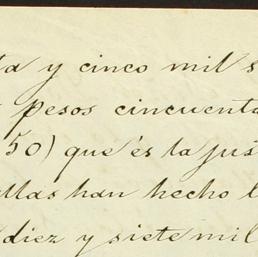 ta y cinco mil s
pesos cincuenta
50) que és la jus
ellas han hecho l
diez y siete mil